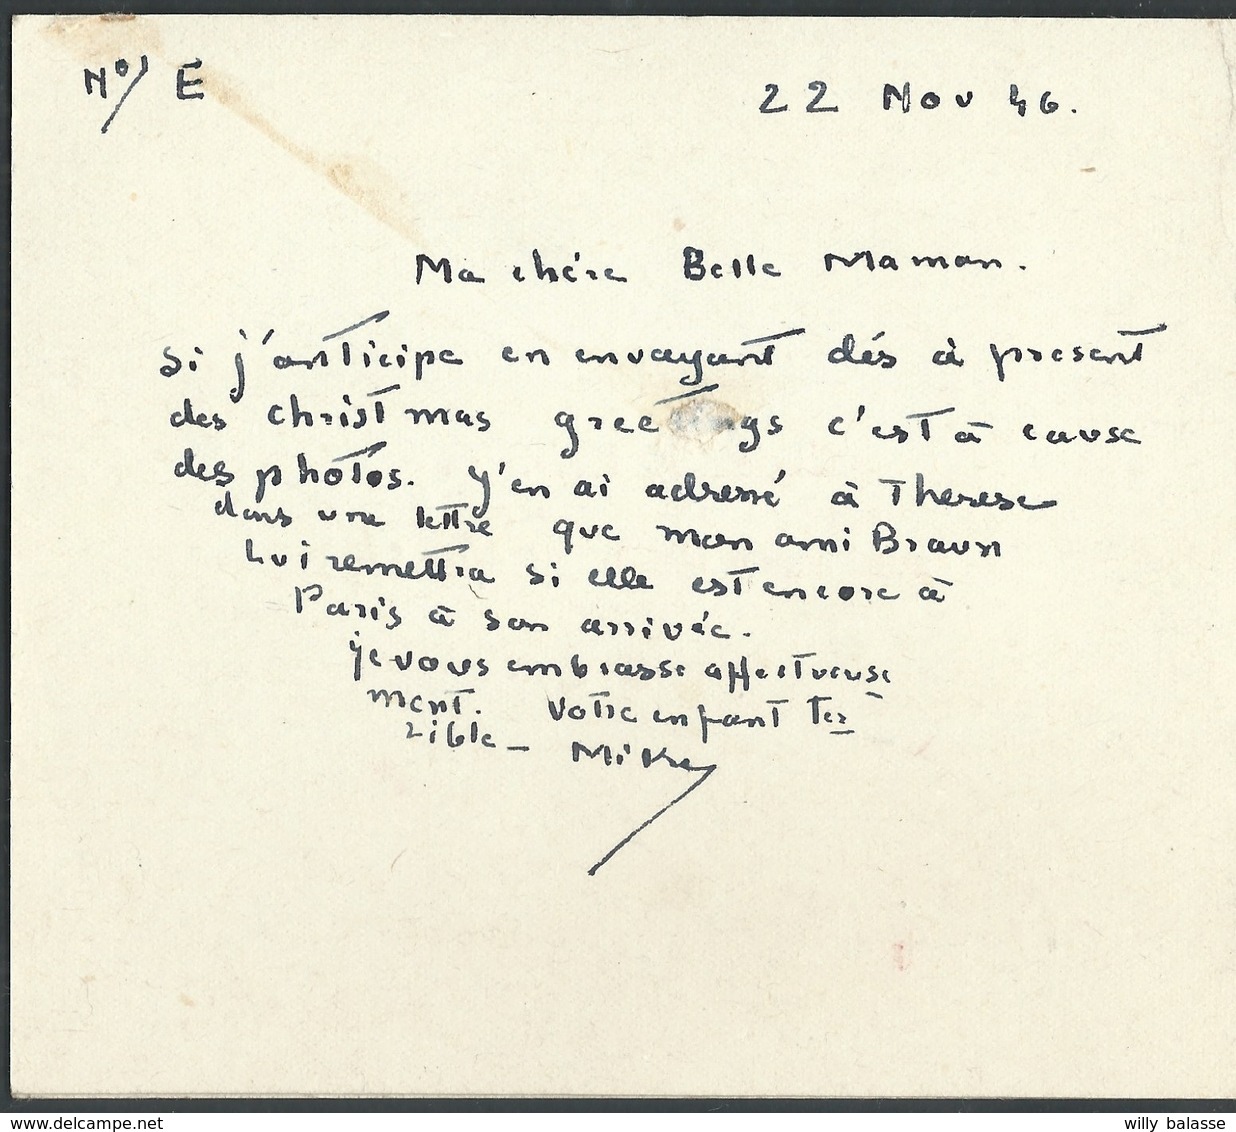 Nº/ E
22 Nov 46.
Ma chére Belle Maman.
si j'anticipe en envoyant dés à present
des christmas greetings c'est à cause
des photos. j'en ai adressé à Therese
dans une lettre que mon ami Braun
Lui remettra si elle est encore à
Paris à son arrivée.
je vous embrasse affectueuse
ment. Votre enfant ter
rible - Mike
willy balasse